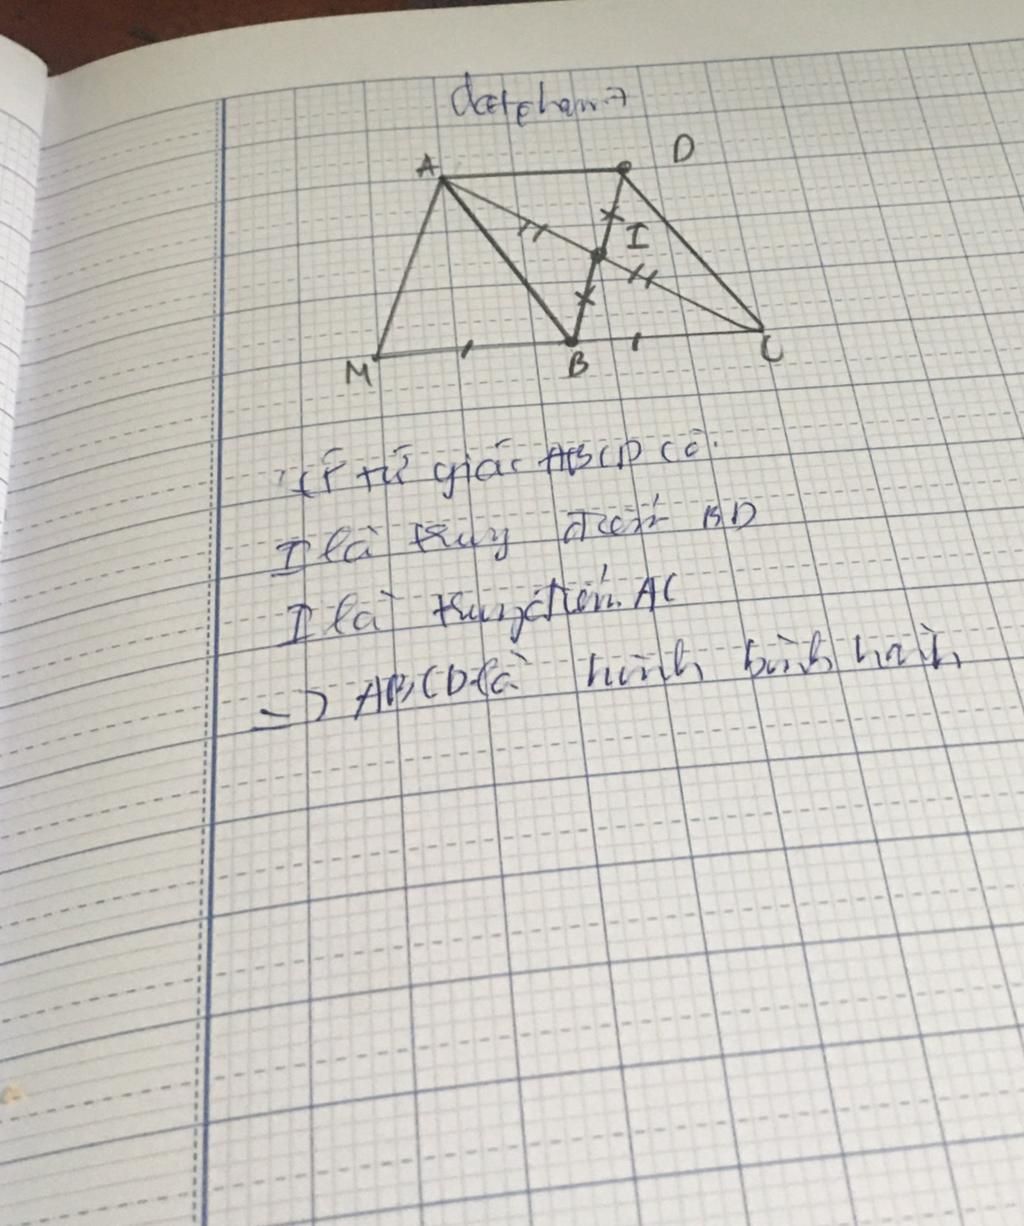 datpham7
A
D
I
M
B
C
Xét tứ giác ABCD có:
I là trung điểm BD
I là trung điểm AC
=> ABCD là hình bình hành